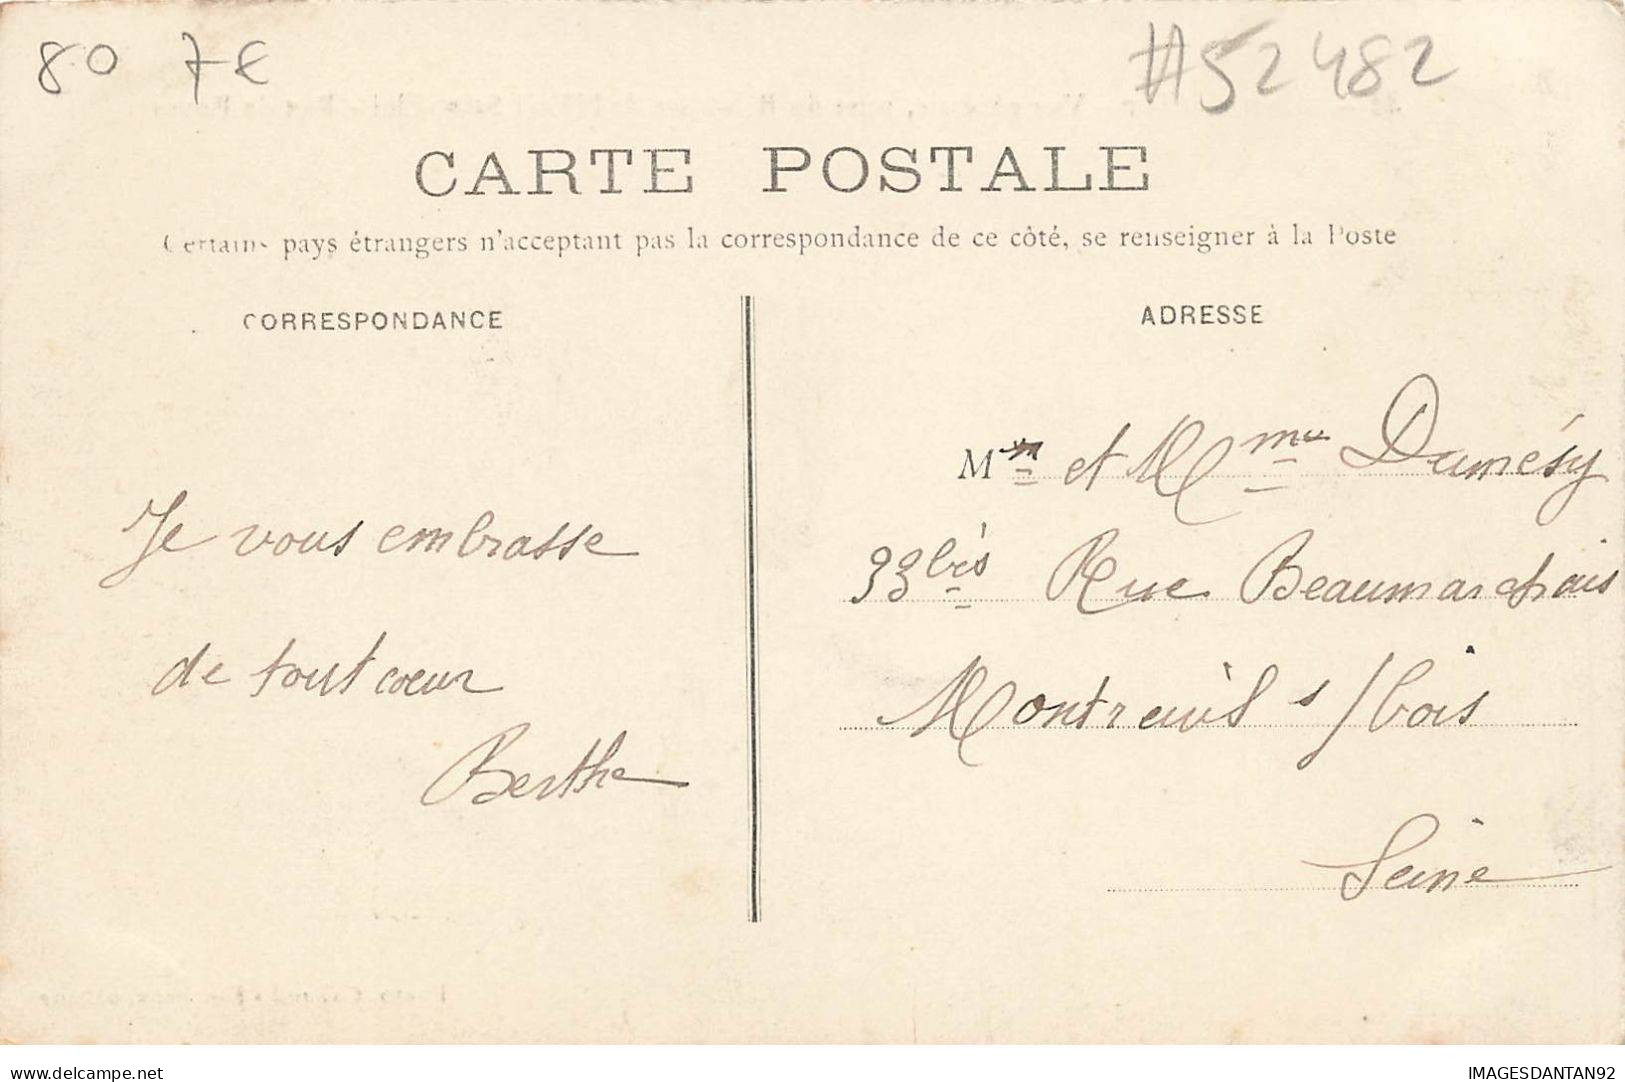 80 7€
#52482
CARTE POSTALE
Certains pays étrangers n'acceptant pas la correspondance de ce côté, se renseigner à la Poste
CORRESPONDANCE
Je vous embrasse
de tout coeur
Berthe
ADRESSE
M et Mme Dumésy
33bis Rue Beaumarchais
Montreuil s/bois
Seine
delcampe.net
IMAGESDANTAN92